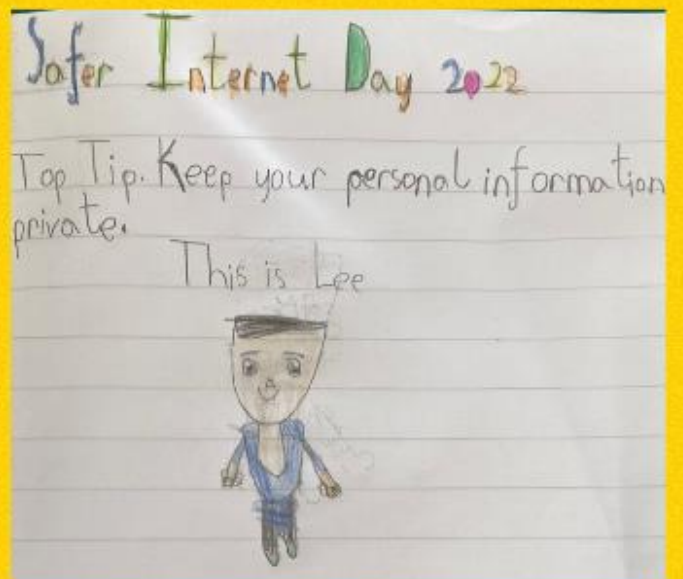 Safer Internet Day 2022
Top Tip. Keep your personal information
private.
This is Lee